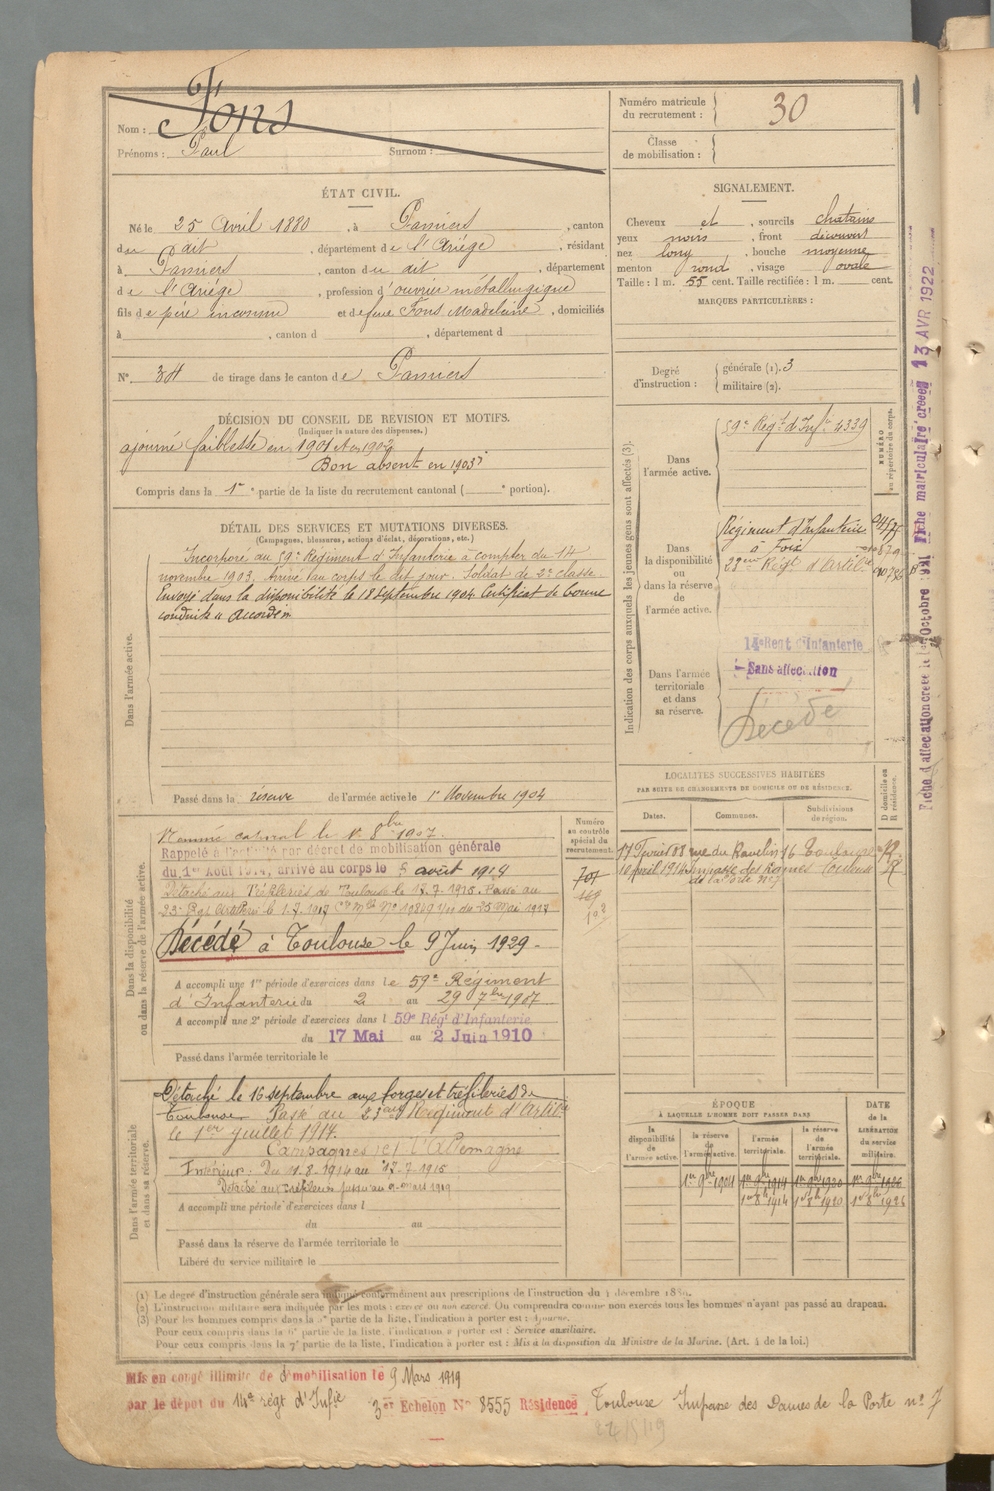 Nom : Fons
Prénoms : Paul Surnom :
Numéro matricule du recrutement : 30
Classe de mobilisation :
ÉTAT CIVIL.
Né le 25 Avril 1880, à Pamiers, canton
du dit, département de l'Ariége, résidant
à Pamiers, canton du dit, département
de l'Ariége, profession d'ouvrier métallurgique
fils de père inconnu et de feue Fons Madeleine, domiciliés
à , canton d , département d
N° 34 de tirage dans le canton de Pamiers
SIGNALEMENT.
Cheveux et, sourcils chatains
yeux noirs, front découvert
nez long, bouche moyenne
menton rond, visage ovale
Taille : 1 m. 55 cent. Taille rectifiée : 1 m. cent.
MARQUES PARTICULIÈRES :
Degré d'instruction : générale (1). 3
militaire (2).
DÉCISION DU CONSEIL DE REVISION ET MOTIFS.
(Indiquer la nature des dispenses.)
ajourné faiblesse en 1901 et en 1902
Bon absent en 1903
Compris dans la 1re partie de la liste du recrutement cantonal ( e portion).
DÉTAIL DES SERVICES ET MUTATIONS DIVERSES.
(Campagnes, blessures, actions d'éclat, décorations, etc.)
Dans l'armée active.
Incorporé au 59e Régiment d'Infanterie à compter du 14
novembre 1903. Arrivé au corps le dit jour. Soldat de 2e classe.
Envoyé dans la disponibilité le 18 septembre 1904. Certificat de bonne
conduite " Accordé "
Passé dans la réserve de l'armée active le 1er Novembre 1904
Indication des corps auxquels les jeunes gens sont affectés (3).
NUMÉRO au répertoire du corps.
Dans l'armée active.
59e Régt d'Infie 4339
Dans la disponibilité ou dans la réserve de l'armée active.
Régiment d'Infanterie
à Foix
23e Régt d'Artillie
Dans l'armée territoriale et dans sa réserve.
14e Regt d'Infanterie
Sans affectation
Décédé
LOCALITÉS SUCCESSIVES HABITÉES
PAR SUITE DE CHANGEMENTS DE DOMICILE OU DE RÉSIDENCE.
Dates. Communes. Subdivisions de région. D domicile ou R résidence.
rue du Ravelin 16 Toulouse
10 avril 1914 Impasse des Dames Toulouse
de la Porte n° 7
Numéro au contrôle spécial du recrutement.
Dans la disponibilité ou dans la réserve de l'armée active.
Nommé caporal le 1er 8bre 1907.
Rappelé à l'activité par décret de mobilisation générale
du 1er Août 1914, arrivé au corps le 5 août 1914
Détaché aux Tréfileries de Toulouse le 12.7.1915. Passé au
23e Rgt Artillerie le 1.7.1917
Décédé à Toulouse le 9 Juin 1929 -
A accompli une 1re période d'exercices dans le 59e Régiment
d'Infanterie du 2 au 29 7bre 1907
A accompli une 2e période d'exercices dans l 59e Régt d'Infanterie
du 17 Mai au 2 Juin 1910
Passé dans l'armée territoriale le
Dans l'armée territoriale et dans sa réserve.
Détaché le 16 septembre aux forges et tréfileries de
Toulouse. Passé au 23eme Régiment d'Artillie
le 1er juillet 1917.
Campagnes ct l'Allemagne
Intérieur : Du 1.8.1914 au 12.7.1915
Détaché aux tréfileries jusqu'au 9 mars 1919
A accompli une période d'exercices dans l
du au
Passé dans la réserve de l'armée territoriale le
Libéré du service militaire le
ÉPOQUE
À LAQUELLE L'HOMME DOIT PASSER DANS
DATE de la LIBÉRATION du service militaire.
la disponibilité de l'armée active. la réserve de l'armée active. l'armée territoriale. la réserve de l'armée territoriale.
1er 9bre 1904 1er 9bre 1914 1er 9bre 1920 1er 9bre 1926
1er 8bre 1914 1er 8bre 1920 1er 8bre 1926
(1) Le degré d'instruction générale sera indiqué conformément aux prescriptions de l'instruction du 4 décembre 1889.
(2) L'instruction militaire sera indiquée par les mots : exercé ou non exercé. On comprendra comme non exercés tous les hommes n'ayant pas passé au drapeau.
(3) Pour les hommes compris dans la 5e partie de la liste, l'indication à porter est : Ajourné.
Pour ceux compris dans la 6e partie de la liste, l'indication à porter est : Service auxiliaire.
Pour ceux compris dans la 7e partie de la liste, l'indication à porter est : Mis à la disposition du Ministre de la Marine. (Art. 4 de la loi.)
Mis en congé illimité de démobilisation le 9 Mars 1919
par le dépôt du 14e régt d'Infie 3er Echelon N° 8555 Résidence Toulouse Impasse des Dames de la Porte n° 7
Fiche d'affectation créée le 1er Octobre 1921 Fiche matriculaire créée le 13 AVR 1922